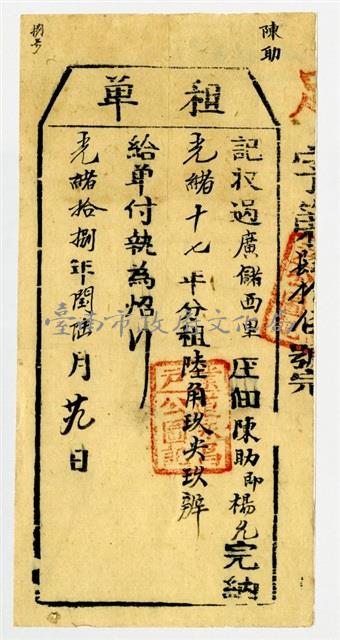 陳助
租單
記收過廣儲西里庄佃陳助即楊允完納
光緒十七年分租陸角玖尖玖辦
給單付執為炤
光緒拾捌年閏陸月廿九日
捌号
臺南市政府文化局